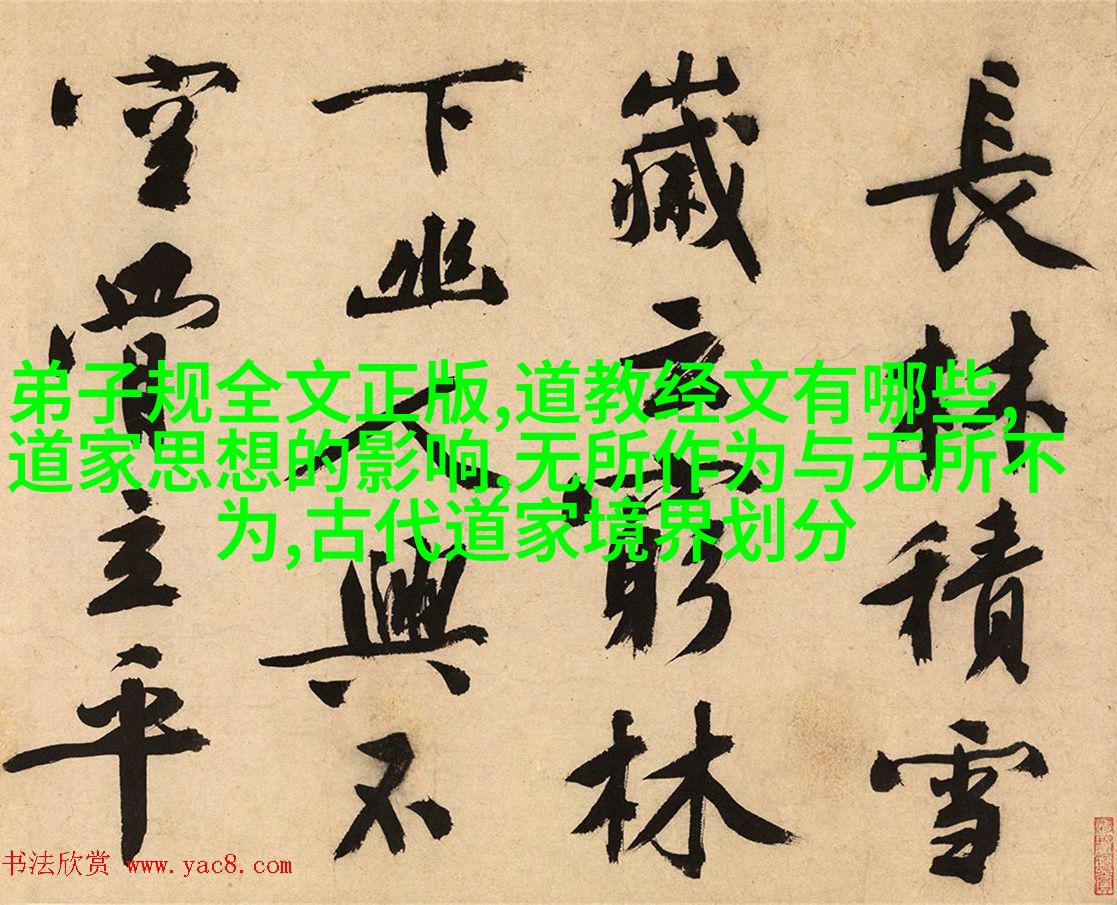 長林積雪
歲云窮林
下幽人興不
空立平
弟子规全文正版,道教经文有哪些,
道家思想的影响,无所作为与无所不
为,古代道家境界划分
书法欣赏 www.yac8.com